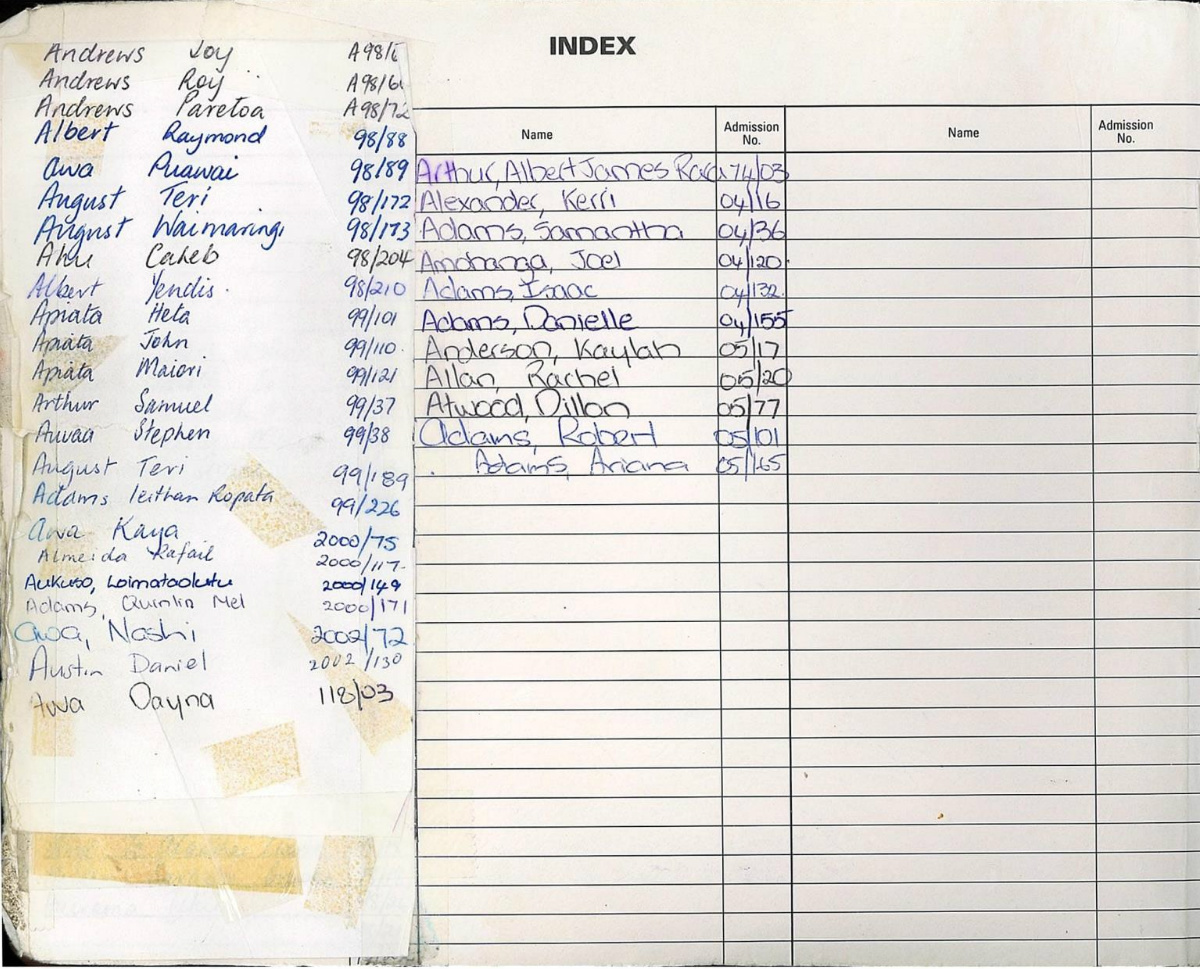 Andrews Joy A98/
Andrews Roy A98/6
Andrews Paretoa A98/72
Albert Raymond 98/88
Awa Puawai 98/89
August Teri 98/172
August Waimaringi 98/173
Ahu Caheb 98/204
Albert Yendis. 98/210
Apiata Heta 99/101
Apiata John 99/110.
Apiata Maiori 99/121
Arthur Samuel 99/37
Auvaa Stephen 99/38
August Teri 99/189
Adams Ieithan Ropata 99/226
Awa Kaya 2000/75
Almeida Rafail 2000/117.
Aukuso, Loimataokutu 2000/149
Adams, Quintin Mel 2000/171
Awa, Nashi 2002/72
Austin Daniel 2002/130
Awa Dayna 118/03
INDEX
Name Admission No. Name Admission No.
Arthur, Albert James Rara 74/03
Alexander, Kerri 04/16
Adams, Samantha 04/36
Amohanga, Joel 04/120
Adams, Isaac 04/132
Adams, Danielle 04/155
Anderson, Kaylah 05/17
Allan, Rachel 05/20
Atwood, Dillon 05/77
Adams, Robert 05/101
Adams, Ariana 05/165